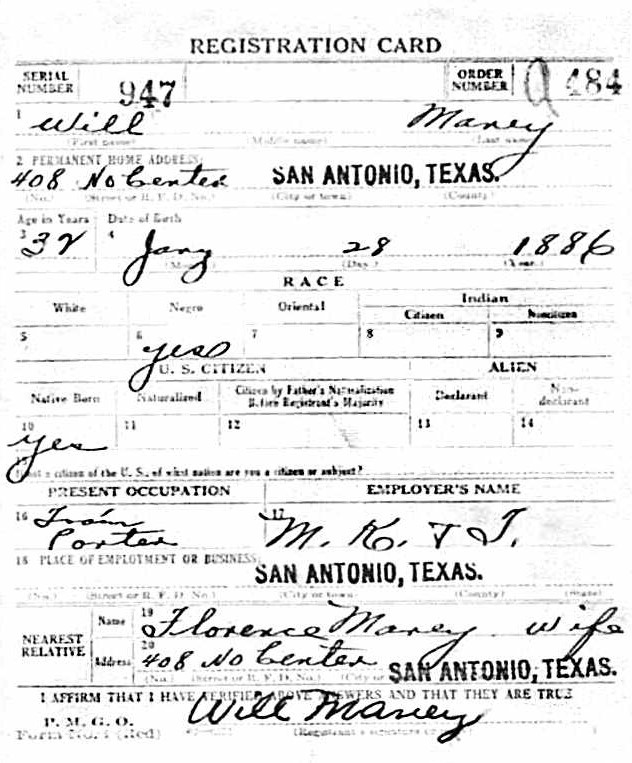 REGISTRATION CARD
SERIAL NUMBER 947 ORDER NUMBER 484
1 Will Maney
(First name) (Middle name) (Last name)
2 PERMANENT HOME ADDRESS:
408 No Center SAN ANTONIO, TEXAS.
(No.) (Street or R. F. D. No.) (City or town) (County)
Age in Years Date of Birth
3 32 4 Jany 28 1886
(Month) (Day.) (Year.)
RACE
White Negro Oriental Indian
Citizen Noncitizen
5 6 yes 7 8 9
U. S. CITIZEN ALIEN
Native Born Naturalized Citizen by Father's Naturalization Before Registrant's Majority Declarant Non-declarant
10 yes 11 12 13 14
15 If not a citizen of the U. S., of what nation are you a citizen or subject?
PRESENT OCCUPATION EMPLOYER'S NAME
16 Train Porter 17 M. K. & T.
18 PLACE OF EMPLOYMENT OR BUSINESS:
SAN ANTONIO, TEXAS.
(No.) (Street or R. F. D. No.) (City or town) (County) (State)
NEAREST RELATIVE Name 19 Florence Maney Wife
Address 20 408 No Center SAN ANTONIO, TEXAS.
(No.) (Street or R. F. D. No.) (City or
I AFFIRM THAT I HAVE VERIFIED ABOVE ANSWERS AND THAT THEY ARE TRUE
P. M. G. O.
Form No. 1 (Red) Will Maney
(Registrant's signature